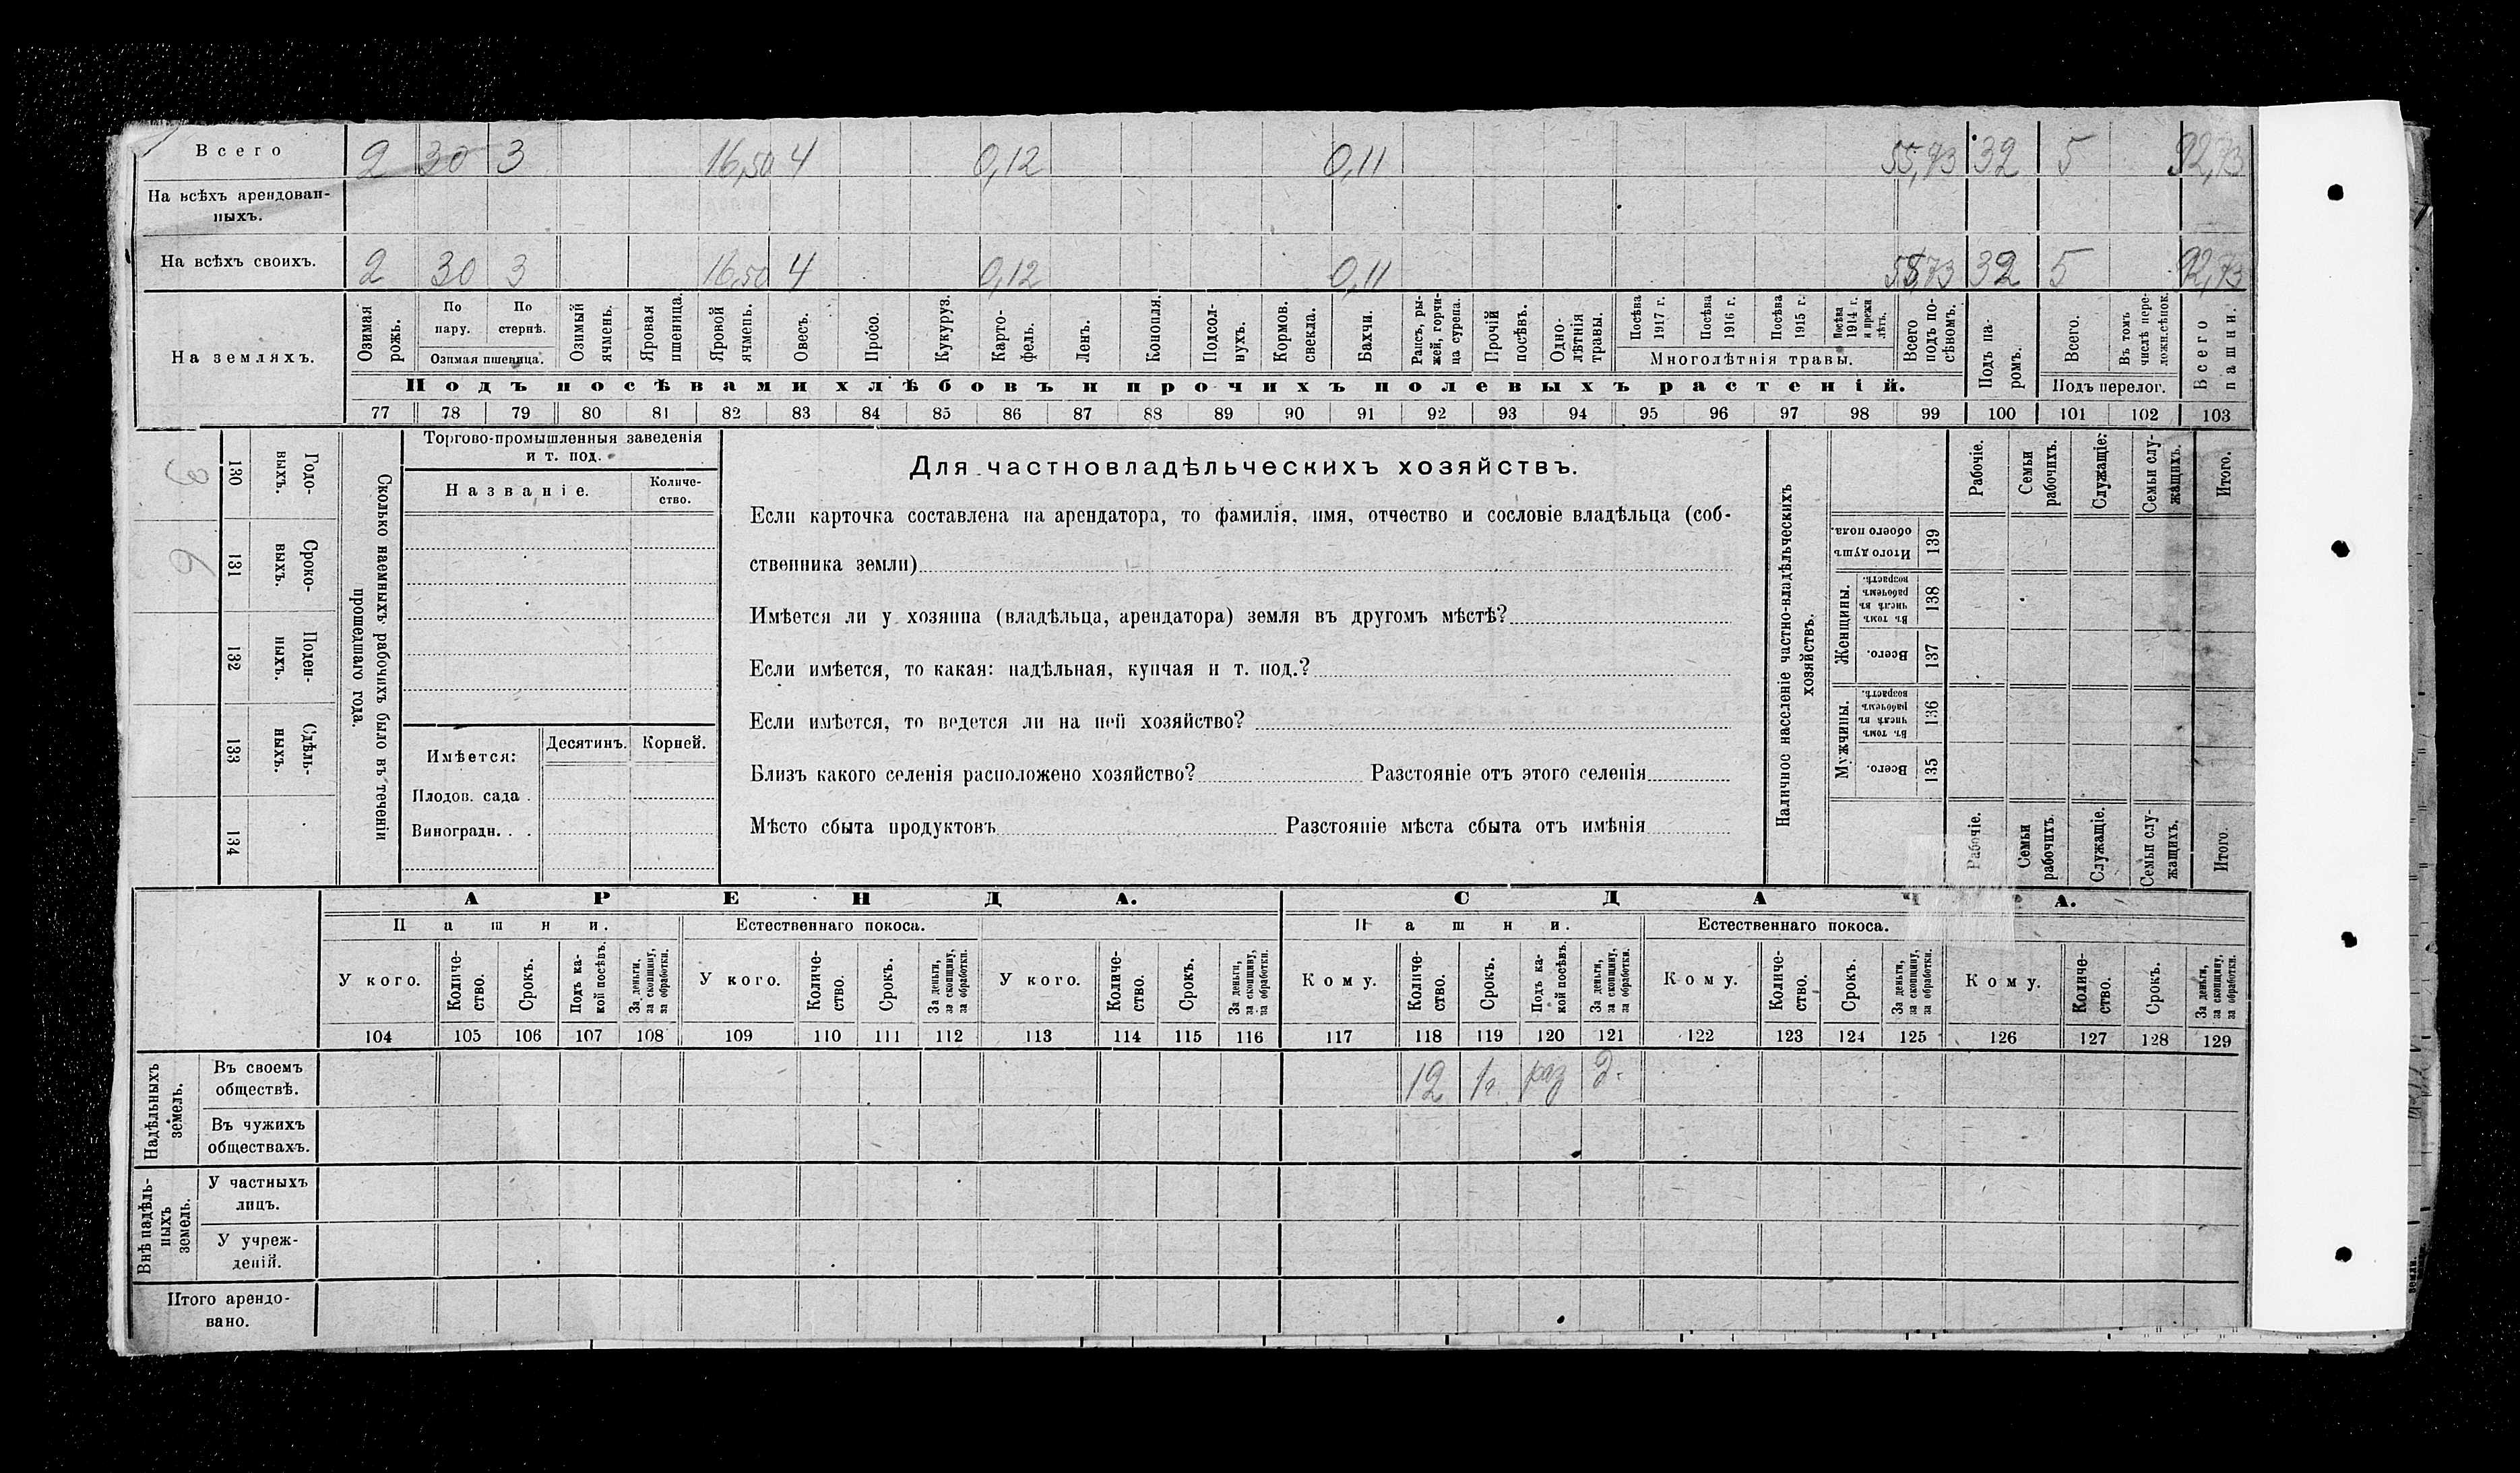 Всего 2 30 3 16,50 4 0,12 0,11 55,73 32 5 92,73
На всѣхъ арендован-
ныхъ.
На всѣхъ своихъ. 2 30 3 16,50 4 0,12 0,11 55,73 32 5 92,73
На земляхъ.
Озимая рожь.
По пару.
По стернѣ.
Озимая пшеница.
Озимый ячмень.
Яровая пшеница.
Яровой ячмень.
Овесъ.
Просо.
Кукуруз.
Карто-
фель.
Ленъ.
Конопля.
Подсол-
нухъ.
Кормов. свекла.
Бахчи.
Рапсъ, ры-
жей, горчи-
ца сурепа.
Прочій посѣвъ.
Одно-
лѣтнія травы.
Посѣва 1917 г.
Посѣва 1916 г.
Посѣва 1915 г.
Посѣва 1914 г. и прежн лѣтъ.
Многолѣтнія травы.
Всего подъ по-
сѣвомъ.
Подъ па-
ромъ.
Всего.
Въ томъ числѣ пере-
ложн.сѣнок.
Подъ перелог.
Всего пашни.
Подъ посѣвами хлѣбовъ и прочихъ полевыхъ растеній.
77 78 79 80 81 82 83 84 85 86 87 88 89 90 91 92 93 94 95 96 97 98 99 100 101 102 103
3 130 Годо-
выхъ.
6 131 Сроко-
выхъ.
132 Поден-
ныхъ.
133 Сдѣль-
ныхъ.
134
Сколько наемныхъ рабочихъ было въ теченіи
прошедшаго года.
Торгово-промышленныя заведенія
и т. под.
Названіе.
Количе-
ство.
Имѣется: Десятинъ. Корней.
Плодов. сада .
Виноградн. . .
Для частновладѣльческихъ хозяйствъ.
Если карточка составлена на арендатора, то фамилія, имя, отчество и сословіе владѣльца (соб-
ственника земли)
Имѣется ли у хозяина (владѣльца, арендатора) земля въ другомъ мѣстѣ?
Если имѣется, то какая: надѣльная, купчая и т. под.?
Если имѣется, то ведется ли на ней хозяйство?
Близъ какого селенія расположено хозяйство? Разстояніе отъ этого селенія
Мѣсто сбыта продуктовъ Разстояніе мѣста сбыта отъ имѣнія
Наличное населеніе частно-владѣльческихъ
хозяйствъ.
Рабочіе.
Семьи рабочихъ.
Служащіе:
Семьи слу-
жащихъ.
Итого.
Итого душъ обоего пола. 139
Женщины.
Въ томъ числѣ въ рабочемъ возрастѣ. 138
Всего. 137
Мужчины.
Въ томъ числѣ въ рабочемъ возрастѣ. 136
Всего. 135
Рабочіе.
Семьи рабочихъ.
Служащіе.
Семьи слу-
жащихъ.
Итого.
АРЕНДА. СДАЧА.
Пашни. Естественнаго покоса. Пашни. Естественнаго покоса.
У кого.
Количе-
ство.
Срокъ.
Подъ ка-
кой посѣвъ.
За деньги, за скопщину, за обработки.
У кого.
Количе-
ство.
Срокъ.
За деньги, за скопщину, за обработки.
У кого.
Количе-
ство.
Срокъ.
За деньги, за скопщину, за обработки.
Кому.
Количе-
ство.
Срокъ.
Подъ ка-
кой посѣвъ.
За деньги, за скопщину, за обработки.
Кому.
Количе-
ство.
Срокъ.
За деньги, за скопщину, за обработки.
Кому.
Количе-
ство.
Срокъ.
За деньги, за скопщину, за обработки.
104 105 106 107 108 109 110 111 112 113 114 115 116 117 118 119 120 121 122 123 124 125 126 127 128 129
Надѣльныхъ земель.
Въ своемъ
обществѣ. 12 1г. раз д.
Въ чужихъ
обществахъ.
Внѣ надѣль-
ныхъ
земель.
У частныхъ
лицъ.
У учреж-
деній.
Итого арендо-
вано.